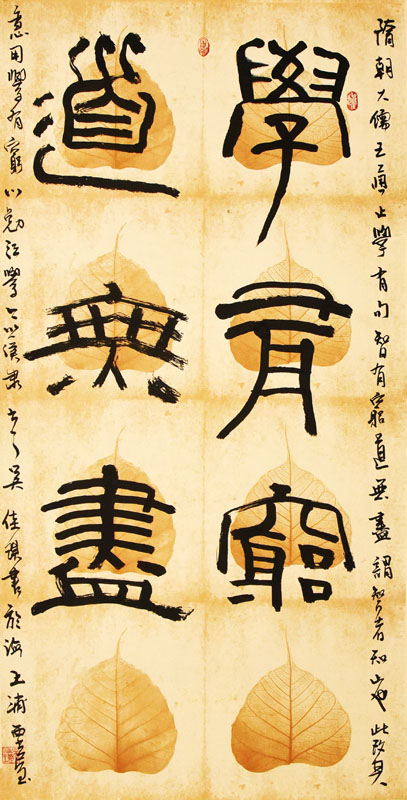 隋朝大儒王通止學有句智有窮道無盡謂智者知也此改其
學有窮
道無盡
意用學有窮以勉學之以漢隸書之吳佳書於海上浦西